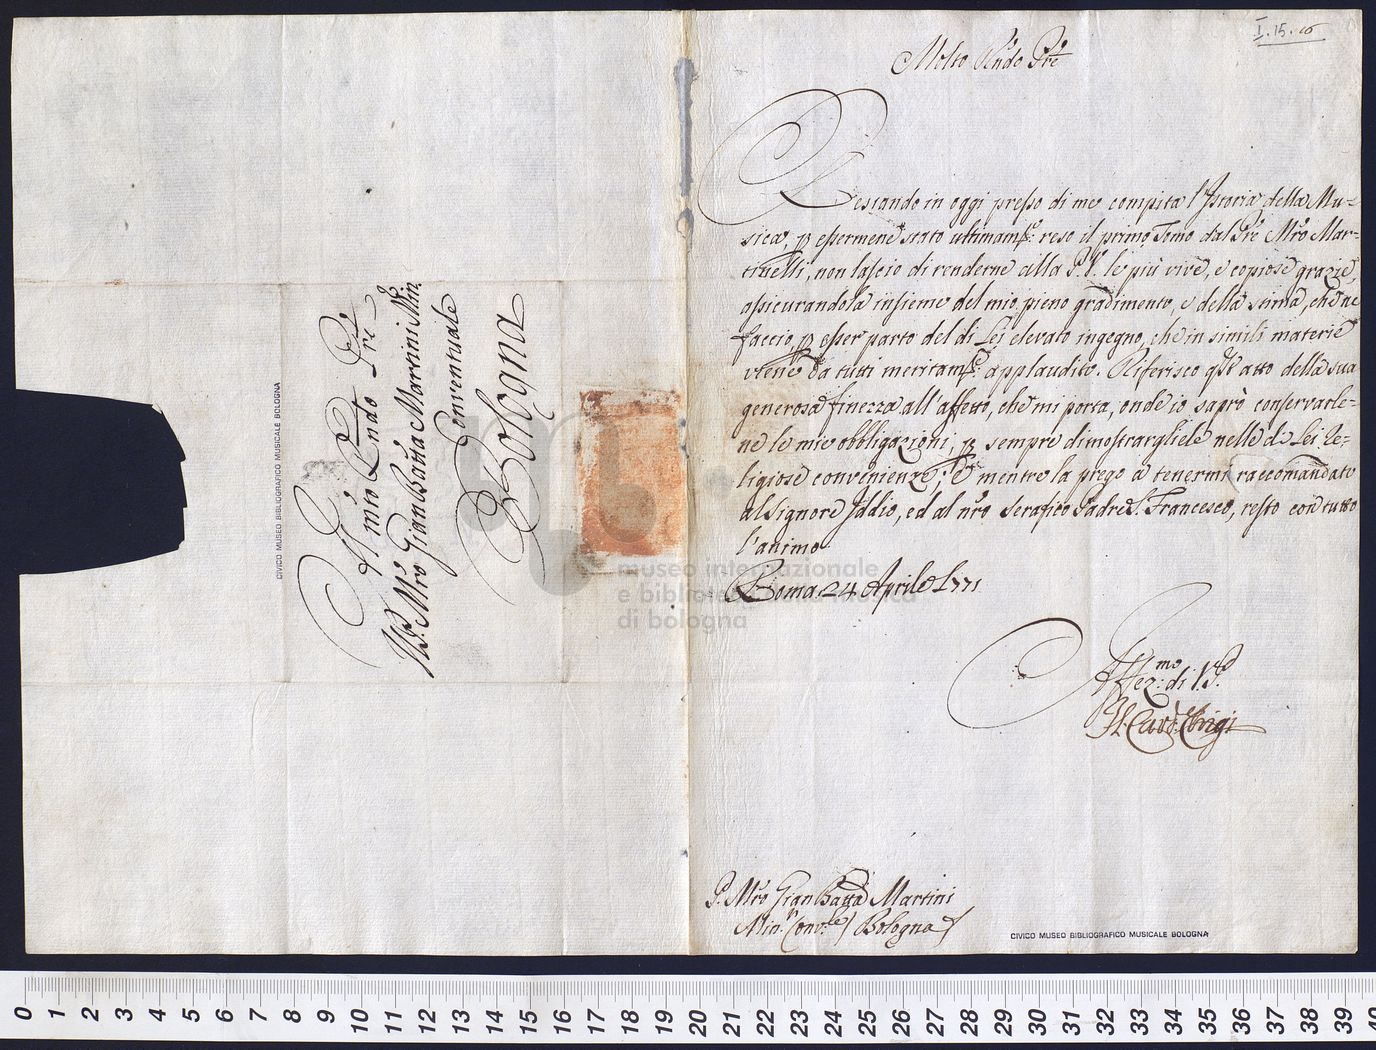 I. 15. 16
Molto Rndo Pre
Restando in oggi presso di me compita l'Istoria della Mu-
sica, p essermene stato ultimamte: reso il primo Tomo dal Pre Mro Mar-
tinelli, non lascio di renderne alla P. V. le più vive, e copiose grazie,
assicurandola insieme del mio pieno gradimento, e della stima, che ne
faccio, p esser parto del di Lei elevato ingegno, che in simili materie
viene da tutti meritamte: applaudito. Riferisco qto atto della sua
generosa finezza all'affetto, che mi porta, onde io saprò conservarle-
ne le mie obbligazioni, p sempre dimostrargliele nelle di Lei Re-
ligiose convenienze; e mentre la prego a tenermi raccomandato
al Signore Iddio, ed al nro Serafico Padre S. Francesco, resto con tutto
l'animo
Roma 24 Aprile 1771
Affez:mo di V. P.
Il Card.
P. Mro Gian Batta Martini
Min: Conv:le / Bologna /
CIVICO MUSEO BIBLIOGRAFICO MUSICALE BOLOGNA
Al molto Rndo Pre
Mro Gian Batta Martini Min.
Conventuale
Bologna
CIVICO MUSEO BIBLIOGRAFICO MUSICALE BOLOGNA
museo internazionale
e biblioteca della musica
di bologna
0 1 2 3 4 5 6 7 8 9 10 11 12 13 14 15 16 17 18 19 20 21 22 23 24 25 26 27 28 29 30 31 32 33 34 35 36 37 38 39 40